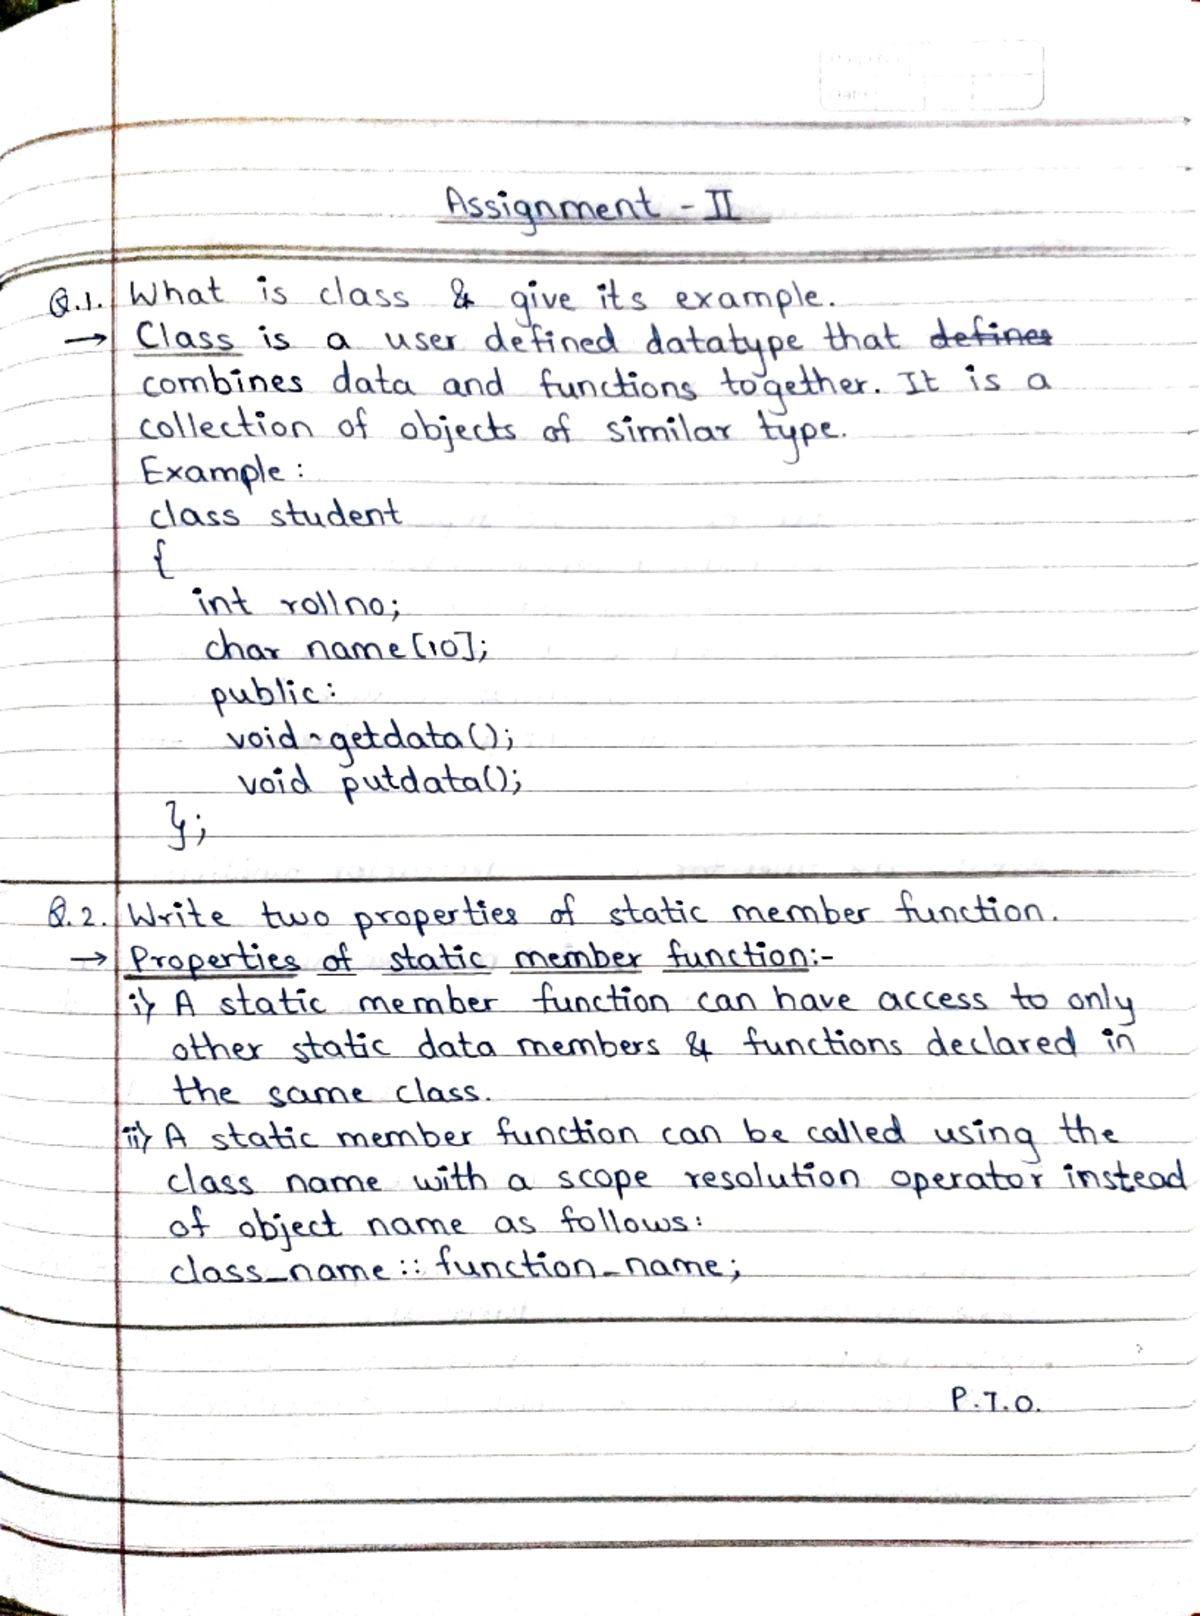 Assignment - II
Q.1. What is class & give its example.
→ Class is a user defined datatype that defines
combines data and functions together. It is a
collection of objects of similar type.
Example :
class student
{
int rollno;
char name[10];
public:
void getdata();
void putdata();
};
Q.2. Write two properties of static member function.
→ Properties of static member function:-
i) A static member function can have access to only
other static data members & functions declared in
the same class.
ii) A static member function can be called using the
class name with a scope resolution operator instead
of object name as follows:
class_name :: function_name;
P.T.O.